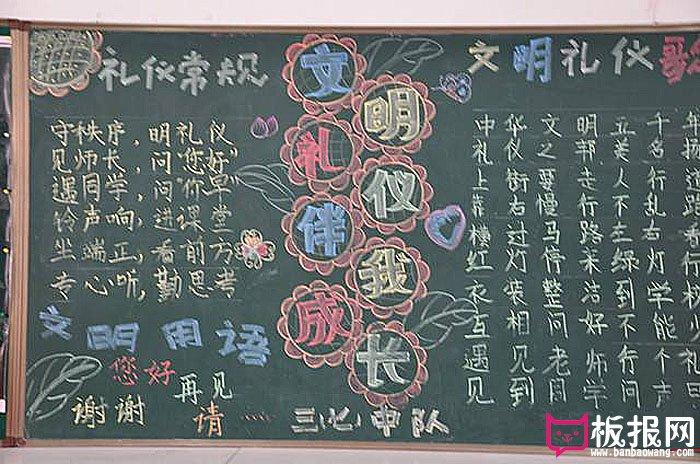 礼仪常规
守秩序，明礼仪
见师长，问"您好"
遇同学，问"你早"
铃声响，进课堂
坐端正，看前方
专心听，勤思考
文明用语
您好
再见
谢谢
请……
文明礼仪伴我成长
中队
文明礼仪歌
中华文明五千年
礼仪之邦美名扬
上街要走人行道
靠右慢行不乱
过马路左右看
红灯停来绿灯行
衣装整洁到学
互相问好不能
遇见老师行个礼
见到同学问声
板报网
www.banbaowang.com